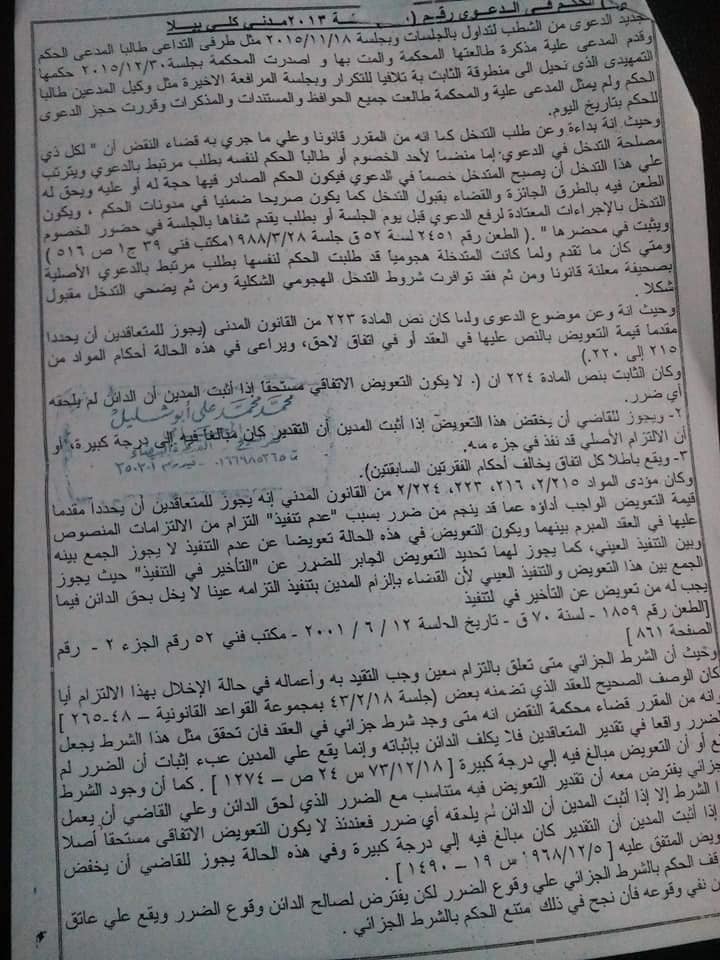 الحكم في الدعوى رقم ( لسنة ٢٠١٣ مدني كلي بيلا
جديد الدعوى من الشطب لتداول بالجلسات وبجلسة ٢٠١٥/١١/١٨ مثل طرفى التداعى طالبا المدعى الحكم
وقدم المدعى علية مذكرة طالعتها المحكمة والمت بها و اصدرت المحكمة بجلسة ٢٠١٥/١٢/٣٠ حكمها
التمهيدى الذى نحيل الى منطوقة الثابت بة تلافيا للتكرار وبجلسة المرافعة الاخيرة مثل وكيل المدعين طالبا
الحكم ولم يمثل المدعى علية والمحكمة طالعت جميع الحوافظ والمستندات والمذكرات وقررت حجز الدعوى
للحكم بتاريخ اليوم.
وحيث انة بداءة وعن طلب التدخل كما انه من المقرر قانونا وعلي ما جري به قضاء النقض أن " لكل ذي
مصلحة التدخل في الدعوي إما منضما لأحد الخصوم أو طالباً الحكم لنفسه بطلب مرتبط بالدعوي ويترتب
علي هذا التدخل أن يصبح المتدخل خصماً في الدعوي فيكون الحكم الصادر فيها حجة له أو عليه ويحق له
الطعن فيه بالطرق الجائزة والقضاء بقبول التدخل كما يكون صريحا ضمنيا في مدونات الحكم ، ويكون
التدخل بالإجراءات المعتادة لرفع الدعوي قبل يوم الجلسة أو بطلب يقدم شفاها بالجلسة في حضور الخصوم
ويثبت في محضرها " .( الطعن رقم ٢٤٥١ لسة ٥٢ ق جلسة ١٩٨٨/٣/٢٨ مكتب فني ٣٩ ج١ ص ٥١٦ )
ومتي كان ما تقدم ولما كانت المتدخلة هجومياً قد طلبت الحكم لنفسها بطلب مرتبط بالدعوي الأصلية
بصحيفة معلنة قانونا ومن ثم فقد توافرت شروط التدخل الهجومي الشكلية ومن ثم يضحي التدخل مقبول
شكلا .
وحيث انة وعن موضوع الدعوى ولما كان نص المادة ٢٢٣ من القانون المدنى (يجوز للمتعاقدين أن يحددا
مقدما قيمة التعويض بالنص عليها في العقد أو في اتفاق لاحق، ويراعى في هذه الحالة أحكام المواد من
٢١٥ إلى ٢٢٠.)
وكان الثابت بنص المادة ٢٢٤ ان (. لا يكون التعويض الاتفاقي مستحقاً إذا أثبت المدين أن الدائن لم يلحقه
أي ضرر.
محمد محمد على أبوشليل
٢- ويجوز للقاضي أن يخفض هذا التعويض إذا أثبت المدين أن التقدير كان مبالغاً فيه إلى درجة كبيرة، أو
أن الالتزام الأصلي قد نفذ في جزء منه.
٣- ويقع باطلا كل اتفاق يخالف أحكام الفقرتين السابقتين).
وكان مؤدى المواد ٢/٢١٥، ٢١٦، ٢٢٣، ٢/٢٢٤ من القانون المدني إنه يجوز للمتعاقدين أن يحدداً مقدما
قيمة التعويض الواجب أداؤه عما قد ينجم من ضرر بسبب "عدم تنفيذ" التزام من الالتزامات المنصوص
عليها في العقد المبرم بينهما ويكون التعويض في هذه الحالة تعويضا عن عدم التنفيذ لا يجوز الجمع بينه
وبين التنفيذ العيني، كما يجوز لهما تحديد التعويض الجابر للضرر عن "التأخير في التنفيذ" حيث يجوز
الجمع بين هذا التعويض والتنفيذ العيني لأن القضاء بإلزام المدين بتنفيذ التزامه عينا لا يخل بحق الدائن فيما
يجب له من تعويض عن التأخير في لتنفيذ
[الطعن رقم ١٨٥٩ - لسنة ٧٠ ق - تاريخ الجلسة ١٢ / ٦ / ٢٠٠١ - مكتب فني ٥٢ رقم الجزء ٢ - رقم
الصفحة ٨٦١ ]
وحيث أن الشرط الجزائي متى تعلق بالتزام معين وجب التقيد به وأعماله في حالة الإخلال بهذا الالتزام أيا
كان الوصف الصحيح للعقد الذي تضمنه بعض (جلسة ٤٣/٢/١٨ بمجموعة القواعد القانونية – ٤٨-٢٦٥ ]
انه من المقرر قضاء محكمة النقض انه متى وجد شرط جزائي في العقد فان تحقق مثل هذا الشرط يجعل
لضرر واقعا في تقدير المتعاقدين فلا يكلف الدائن بإثباته وإنما يقع علي المدين عبء إثبات أن الضرر لم
ع أو أن التعويض مبالغ فيه إلي درجة كبيرة [ ٧٣/١٢/١٨ س ٢٤ ص – ١٢٧٤ ] . كما أن وجود الشرط
جزائي يفترض معه أن تقدير التعويض فيه متناسب مع الضرر الذي لحق الدائن وعلي القاضي أن يعمل
ا الشرط إلا إذا أثبت المدين أن الدائن لم يلحقه أي ضرر فعندئذ لا يكون التعويض الاتفاقى مستحقاً أصلا
إذا أثبت المدين أن التقدير كان مبالغ فيه إلي درجة كبيرة وفي هذه الحالة يجوز للقاضي أن يخفض
ويض المتفق عليه [ ١٩٦٨/١٢/٥ س ١٩ – ١٤٩٠ ] .
قف الحكم بالشرط الجزائي علي وقوع الضرر لكن يفترض لصالح الدائن وقوع الضرر ويقع علي عاتق
ن نفي وقوعه فأن نجح في ذلك متنع الحكم بالشرط الجزائي .